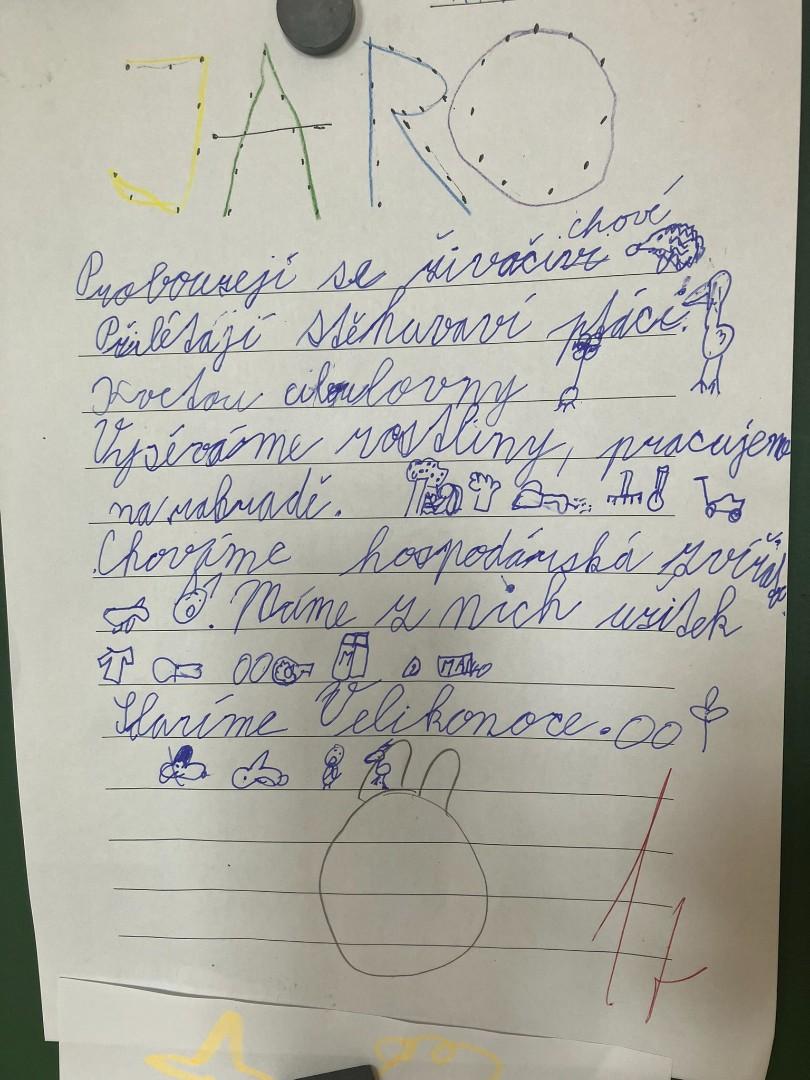 JARO
chové
Probouzejí se živočiví
Přilétájí stěhuvaví ptáci.
Kvetou cibulovny
Vyséváme rostliny, pracujeme
na zahradě.
Chováme hospodářská zvířat
. Máme z nich užitek
M MASLO
Slavíme Velikonoce.
1